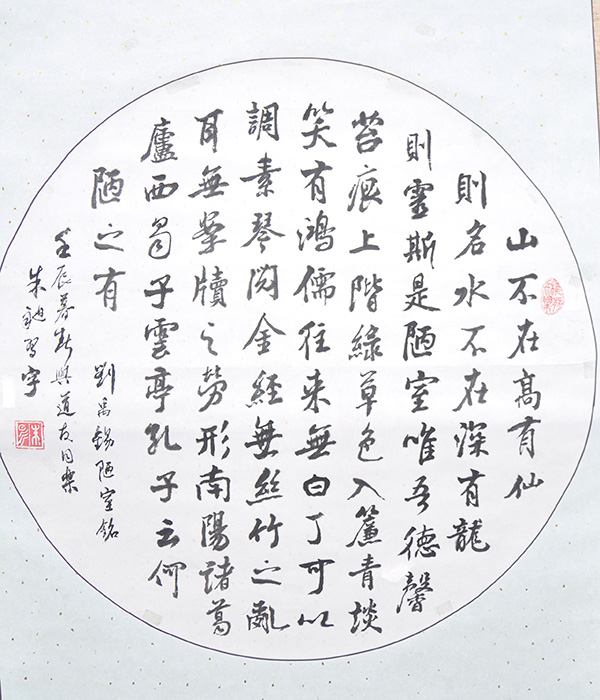 山不在高有仙
則名水不在深有龍
則靈斯是陋室唯吾德馨
苔痕上階綠草色入簾青談
笑有鴻儒往來無白丁可以
調素琴閱金經無絲竹之亂
耳無案牘之勞形南陽諸葛
廬西蜀子雲亭孔子云何
陋之有
劉禹錫陋室銘
壬辰暮秋與道友同樂
朱習字